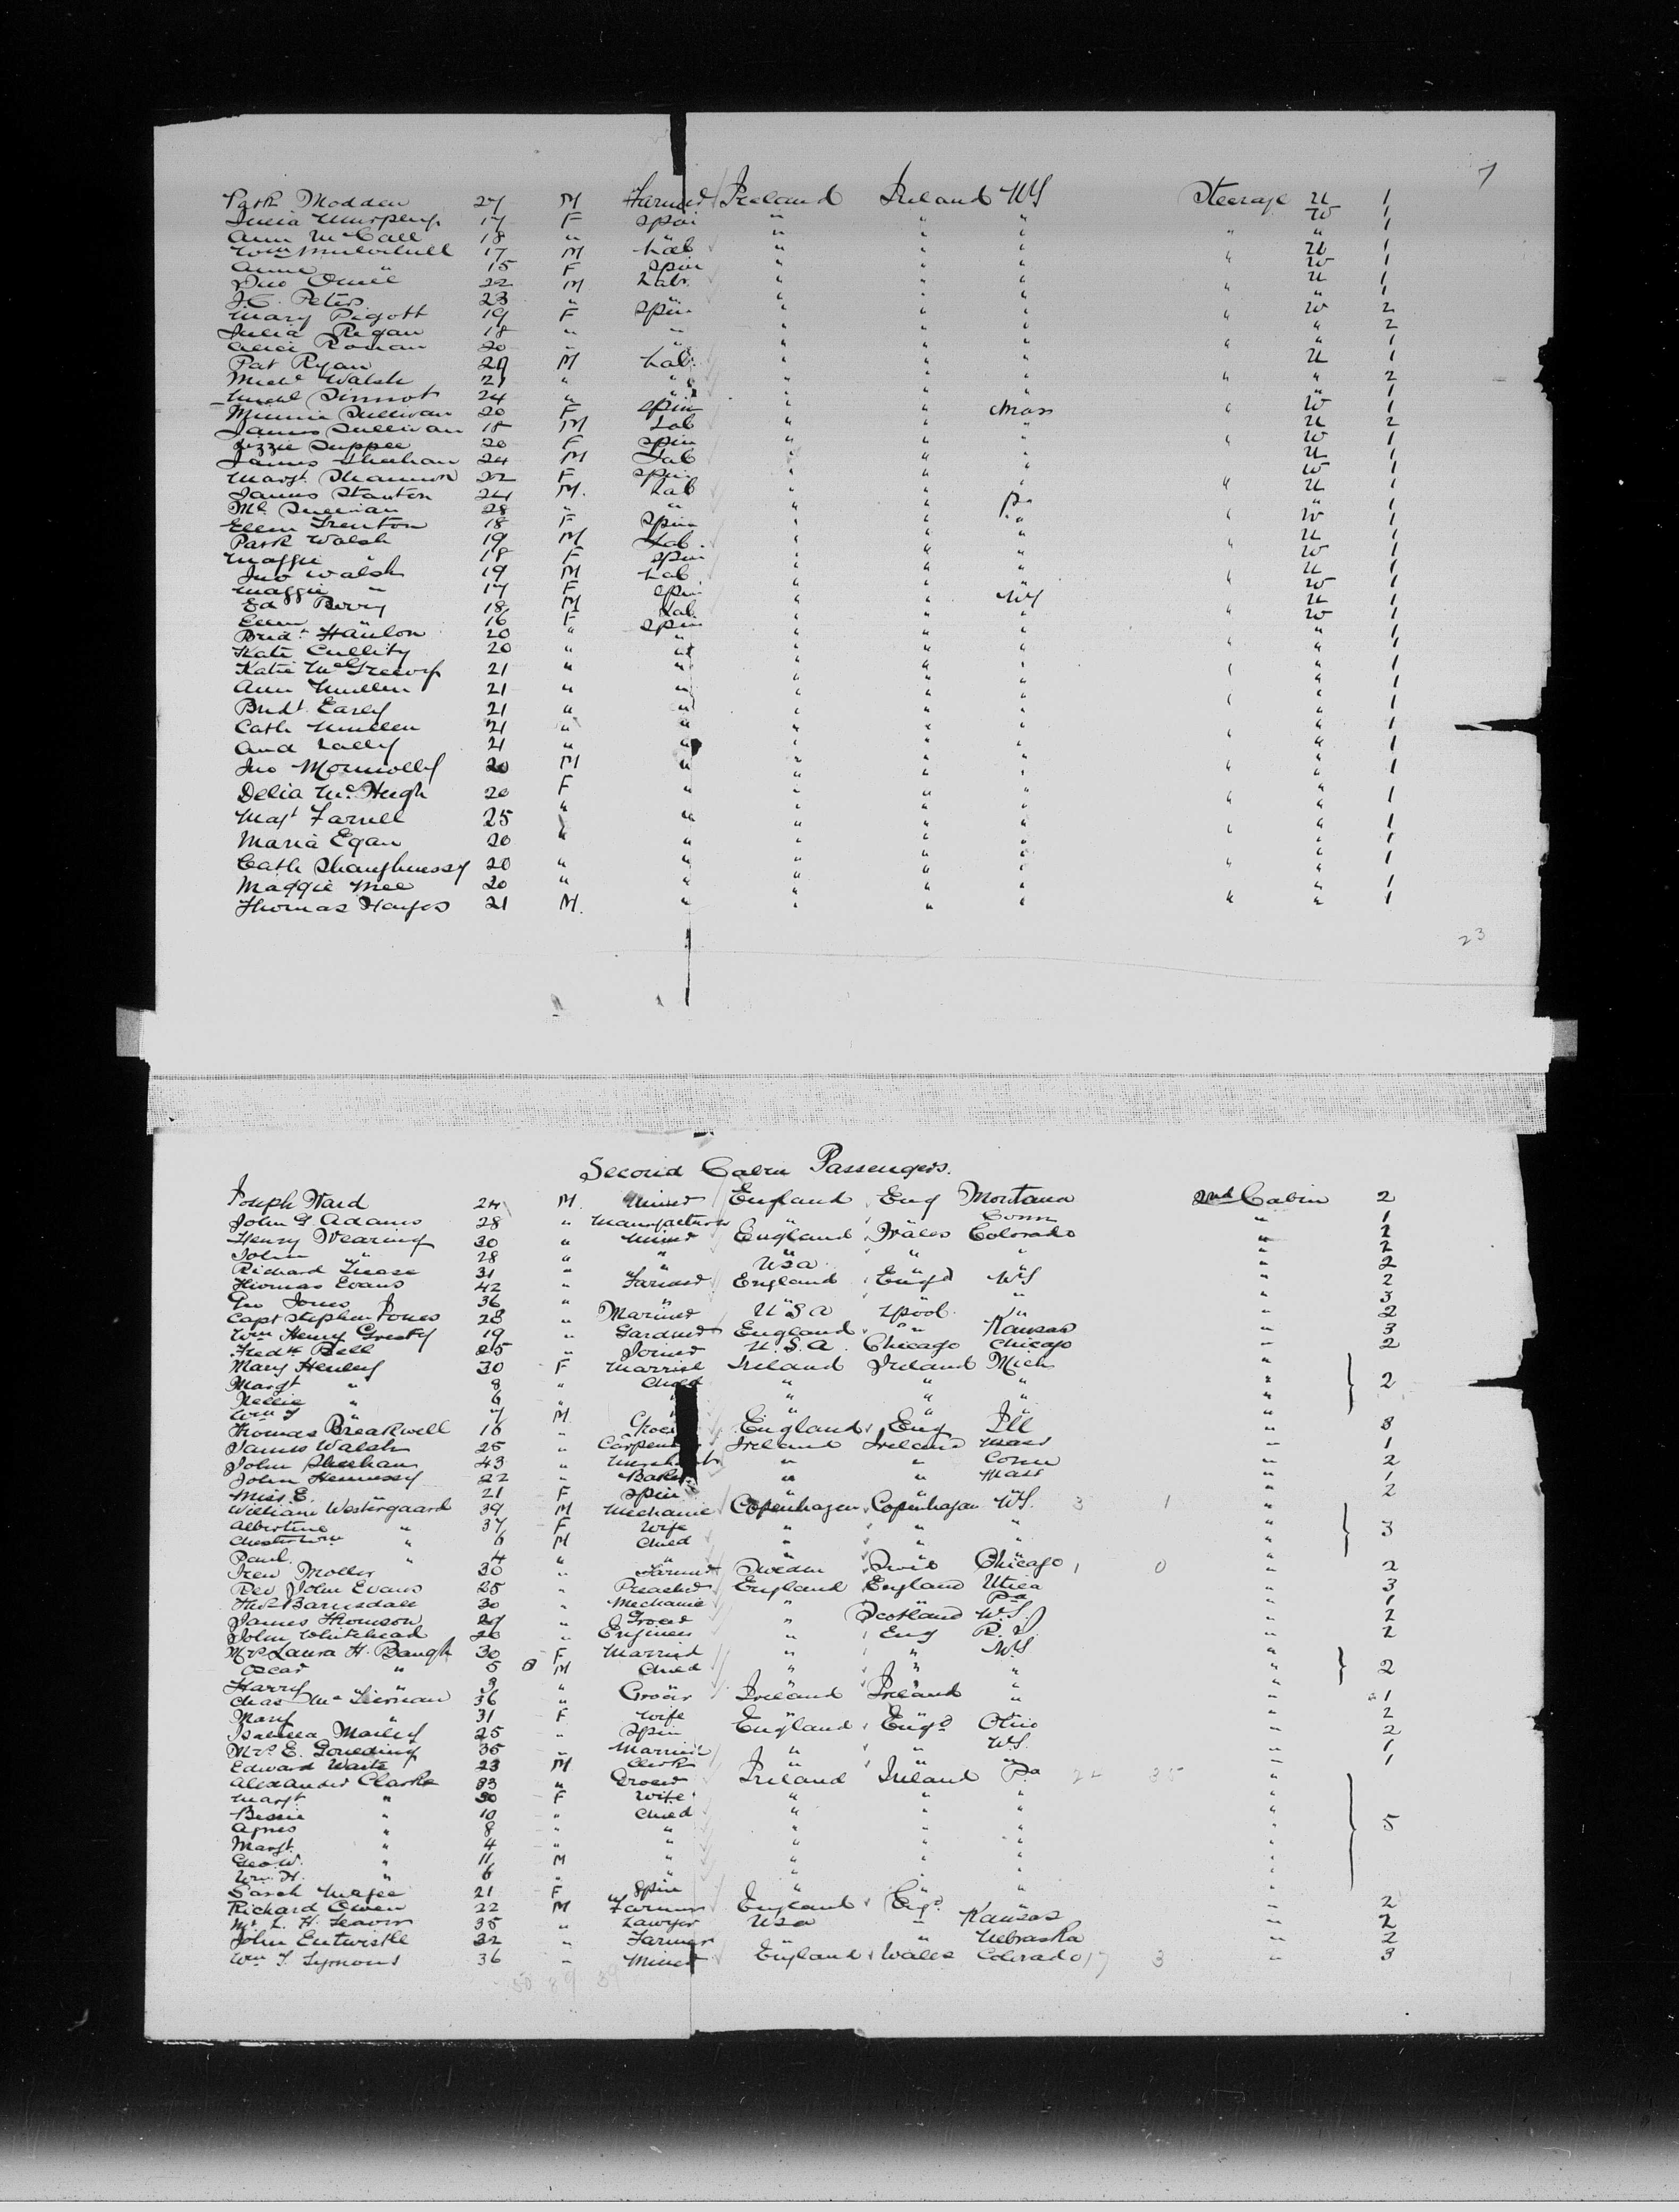 7
Patk Madden 27 M Farmer Ireland Ireland NY Steerage U 1
Julia Murphy 17 F Spin " " " W 1
Ann McCall 18 " " " " " " " 1
Wm 17 M Lab " " " U 1
Anne " 15 F Spin " " " " W 1
Jno 22 M Labr " " " U 1
J.C. Peters 23 " " " " " 1
Mary Pigott 19 F Spin " " " " W 2
Julia Regan 18 " " " " " " 2
Ronan 20 " " " " " " " 1
Pat Ryan 29 M Lab " " " U 1
Michl Walsh 21 " " " " " " " 2
Michl Sinnot 24 " " " " " " 1
Minnie Sullivan 20 F Spin " " Mass " W 1
James Sullivan 18 M Lab " " " U 2
Lizzie Supple 20 F Spin " " " " W 1
James Sheehan 24 M Lab " " " U 1
Margt Shannon 22 F Spin " " " W 1
James Stanton 24 M. Lab " " " " U 1
Ml Sullivan 28 " " " " Pa " 1
Ellen Trenton 18 F Spin " " " " W 1
Patk Walsh 19 M Lab " " " U 1
Maggie 18 F Spin " " " " W 1
Jno Walsh 19 M Lab " " " U 1
Maggie " 17 F Spin " " " " W 1
Ed Berry 18 M Lab " " NY U 1
Ellen " 16 F Spin " " " " W 1
Bridt Hanlon 20 " " " " " " 1
Kate Cullity 20 " " " " " " " 1
Katie McGreevy 21 " " " " " " 1
Ann Mullen 21 " " " " " " " 1
Bridt Early 21 " " " " " " " 1
Cath Mullen 21 " " " " " " 1
And Lally 21 " " " " " " " 1
Jno 20 M " " " " " " 1
Delia McHugh 20 F " " " " " " 1
Magt Farrell 25 " " " " " " 1
Maria Egan 20 " " " " " " " 1
Cath Shaughnessy 20 " " " " " " " 1
Maggie Mee 20 " " " " " " 1
Thomas Hayes 21 M. " " " " " " 1
23
Second Cabin Passengers.
Joseph Ward 24 M. Miner England Eng Montana 2nd Cabin 2
John G Adams 28 " Manufacturer " " Conn " 1
Henry Wearing 30 " Miner England Wales Colorado " 2
John " 28 " " " " " " 2
Richard 31 " " USA " " " 2
Thomas Evans 42 " Farmer England Engd NY " 2
Geo Jones 36 " " " " " " 3
Capt Stephen Jones 28 " Mariner USA Lpool " " 2
Wm Henry Gresty 19 " Gardner England " Kansas " 3
Fredk Bell 25 " Joiner U.S.A. Chicago Chicago " 2
Mary Henley 30 F Married Ireland Ireland Mich "
Margt " 8 " Child " " " " 2
Nellie " 6 " " " " " "
Wm J " 7 M " " " " "
Thomas Breakwell 16 " England Eng Ill " 8
James Walsh 25 " Ireland Ireland Mass " 1
John Sheehan 43 " " " Conn " 2
John Hennessy 22 " " " Mass " 1
Miss E. " 21 F Spin " " " " 2
William Westergaard 39 M Mechanic Copenhagen Copenhagen NY. 3 1 "
Albertine " 37 F Wife " " " " 3
" 6 M Child " " " "
Paul " 4 " " " " " "
Moller 30 " Farmer Sweden Chicago 1 0 " 2
Rev John Evans 25 " Preacher England England Utica " 3
Thos Barnsdale 30 " Mechanic " " Pa " 1
James Thomson 27 " Grocer " Scotland N.Y. " 2
John Whitehead 26 " Engineer " Eng R.I. " 2
Mrs Laura H. Baugh 30 F Married " " NY "
Oscar " 5 M Child " " " " 2
Harry " 3 " " " " " "
Chas McTiernan 36 " Grocer Ireland Ireland " " 1
Mary " 31 F Wife " " " " 2
Isabella Marley 25 " Spin England Engd Ohio " 2
Mrs E. Goulding 35 " Married " " NY. " 1
Edward Waite 23 M Clerk " " " " 1
Alexander Clarke 33 " Grocer Ireland Ireland Pa 22 35 "
Margt " 30 F Wife " " " "
Bessie " 10 " Child " " " "
Agnes " 8 " " " " " " 5
Margt " 4 " " " " " "
Geo W. " 11 M " " " " "
Wm H. " 6 " " " " " "
Sarah Magee 21 F Spin " " " "
Richard Owen 22 M Farmer England Engd " " 2
Mr L. H. 35 " Lawyer USA " Kansas " 2
John Entwistle 32 " Farmer " " Nebraska " 2
Wm T. Symons 36 " Miner England Wales Colorado 17 3 " 3